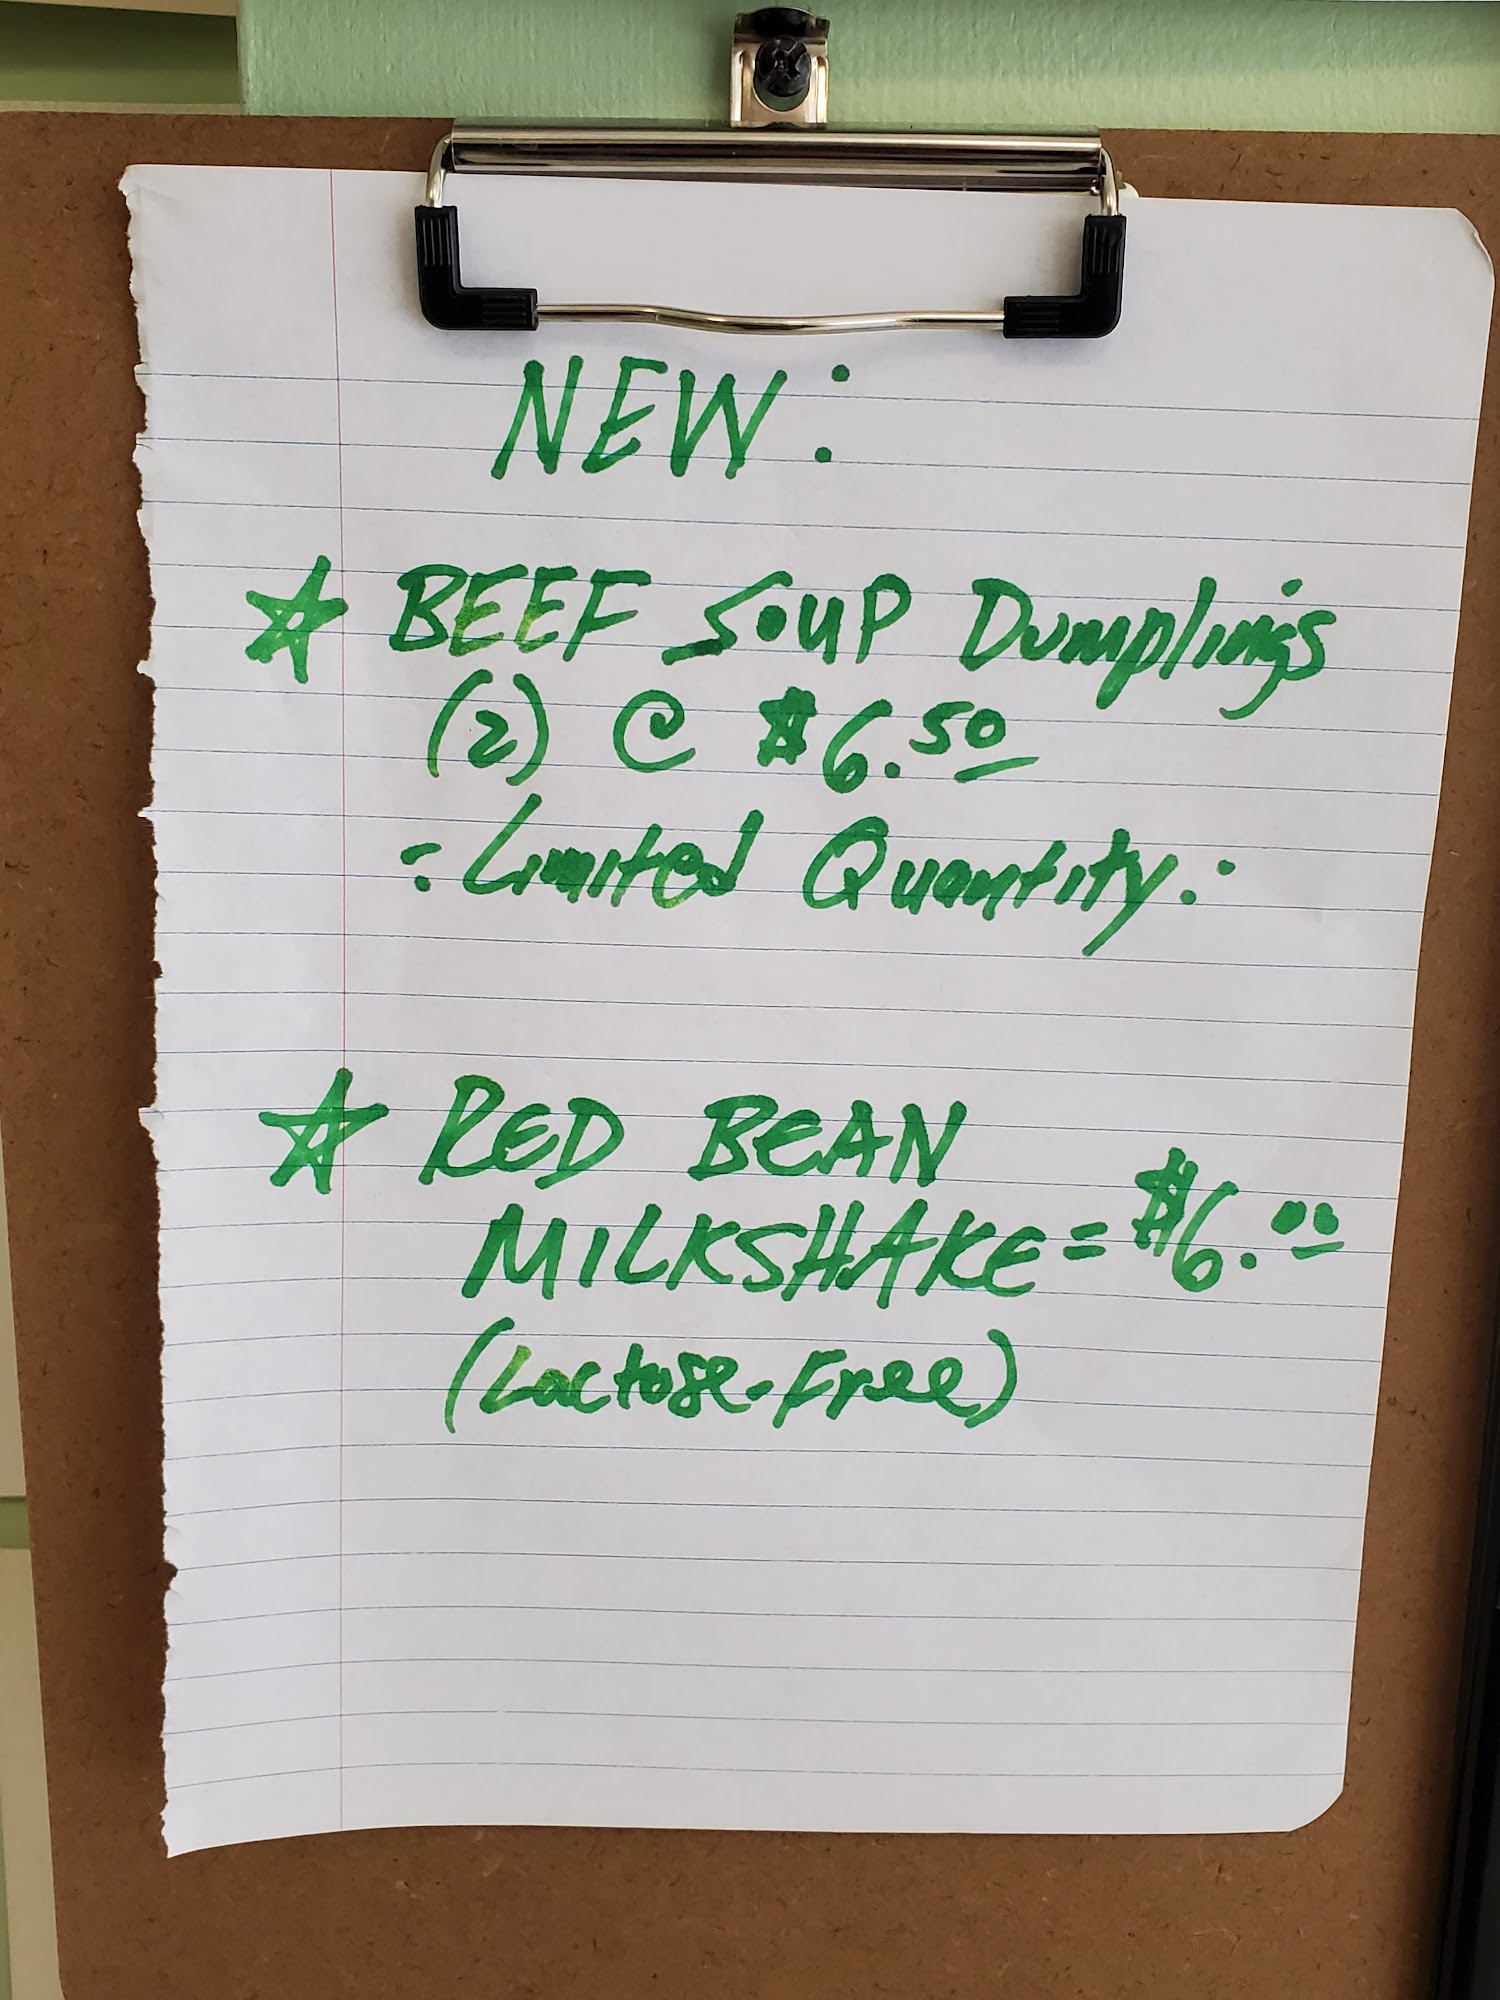 NEW:
☆ BEEF SOUP Dumplings
(2) @ $6.50
: Limited Quantity :
☆ RED BEAN
MILKSHAKE = $6.00
(Lactose-Free)